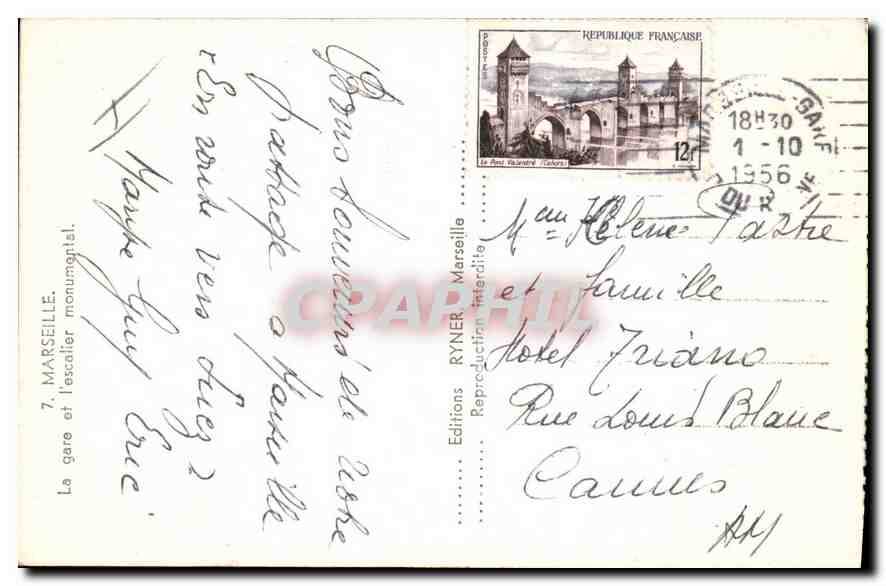 7. MARSEILLE.
La gare et l'escalier monumental.
Bons souvenirs de notre
passage a Marseille
"En route vers Suez"
Guy Eric
Editions RYNER, Marseille
Reproduction interdite
POSTES
REPUBLIQUE FRANÇAISE
Le Pont Valentré (Cahors)
12f
MARSEILLE-GARE
18H30
1-10
1956
Hélène
et famille
Hotel Triano
Rue Louis Blanc
Cannes
AM
CPAPHIL